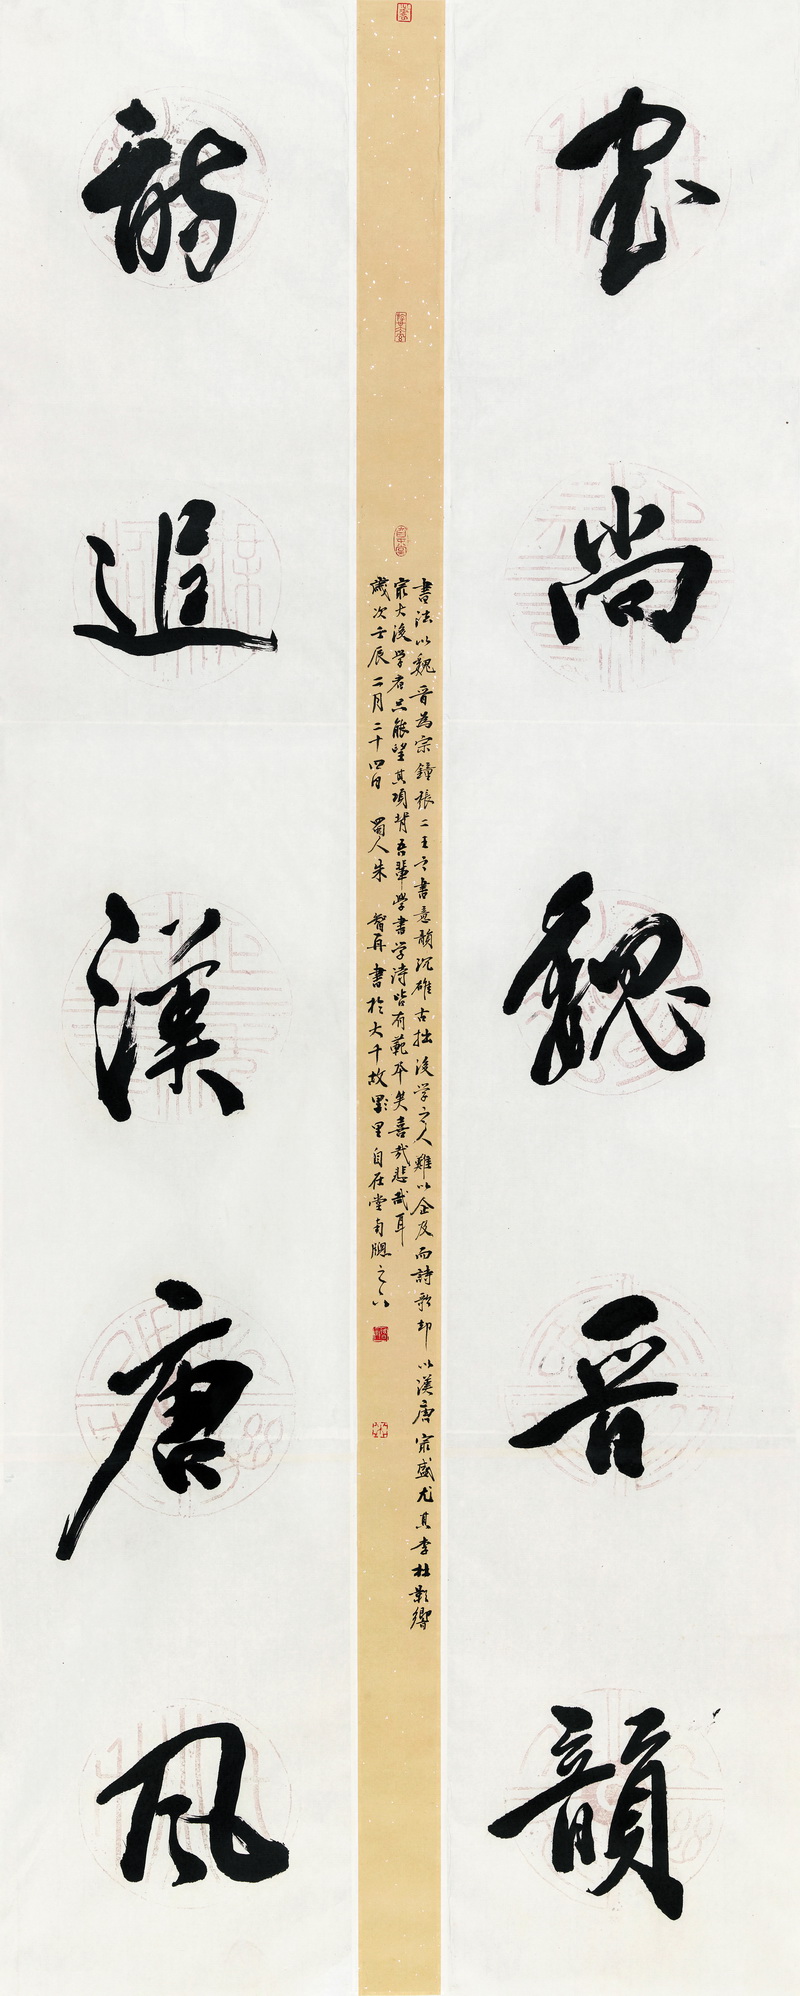 書尚魏晉韻
詩追漢唐風
書法以魏晉為宗鐘張二王之書意韻沉雄古拙後學之人難以企及而詩歌却以漢唐最盛尤其李杜影響
最大後學者只能望其項背吾輩學書學詩皆有範本矣喜哉悲哉耳
歲次壬辰二月二十四日 蜀人朱 智再 書於大千故里自在堂南牕之下